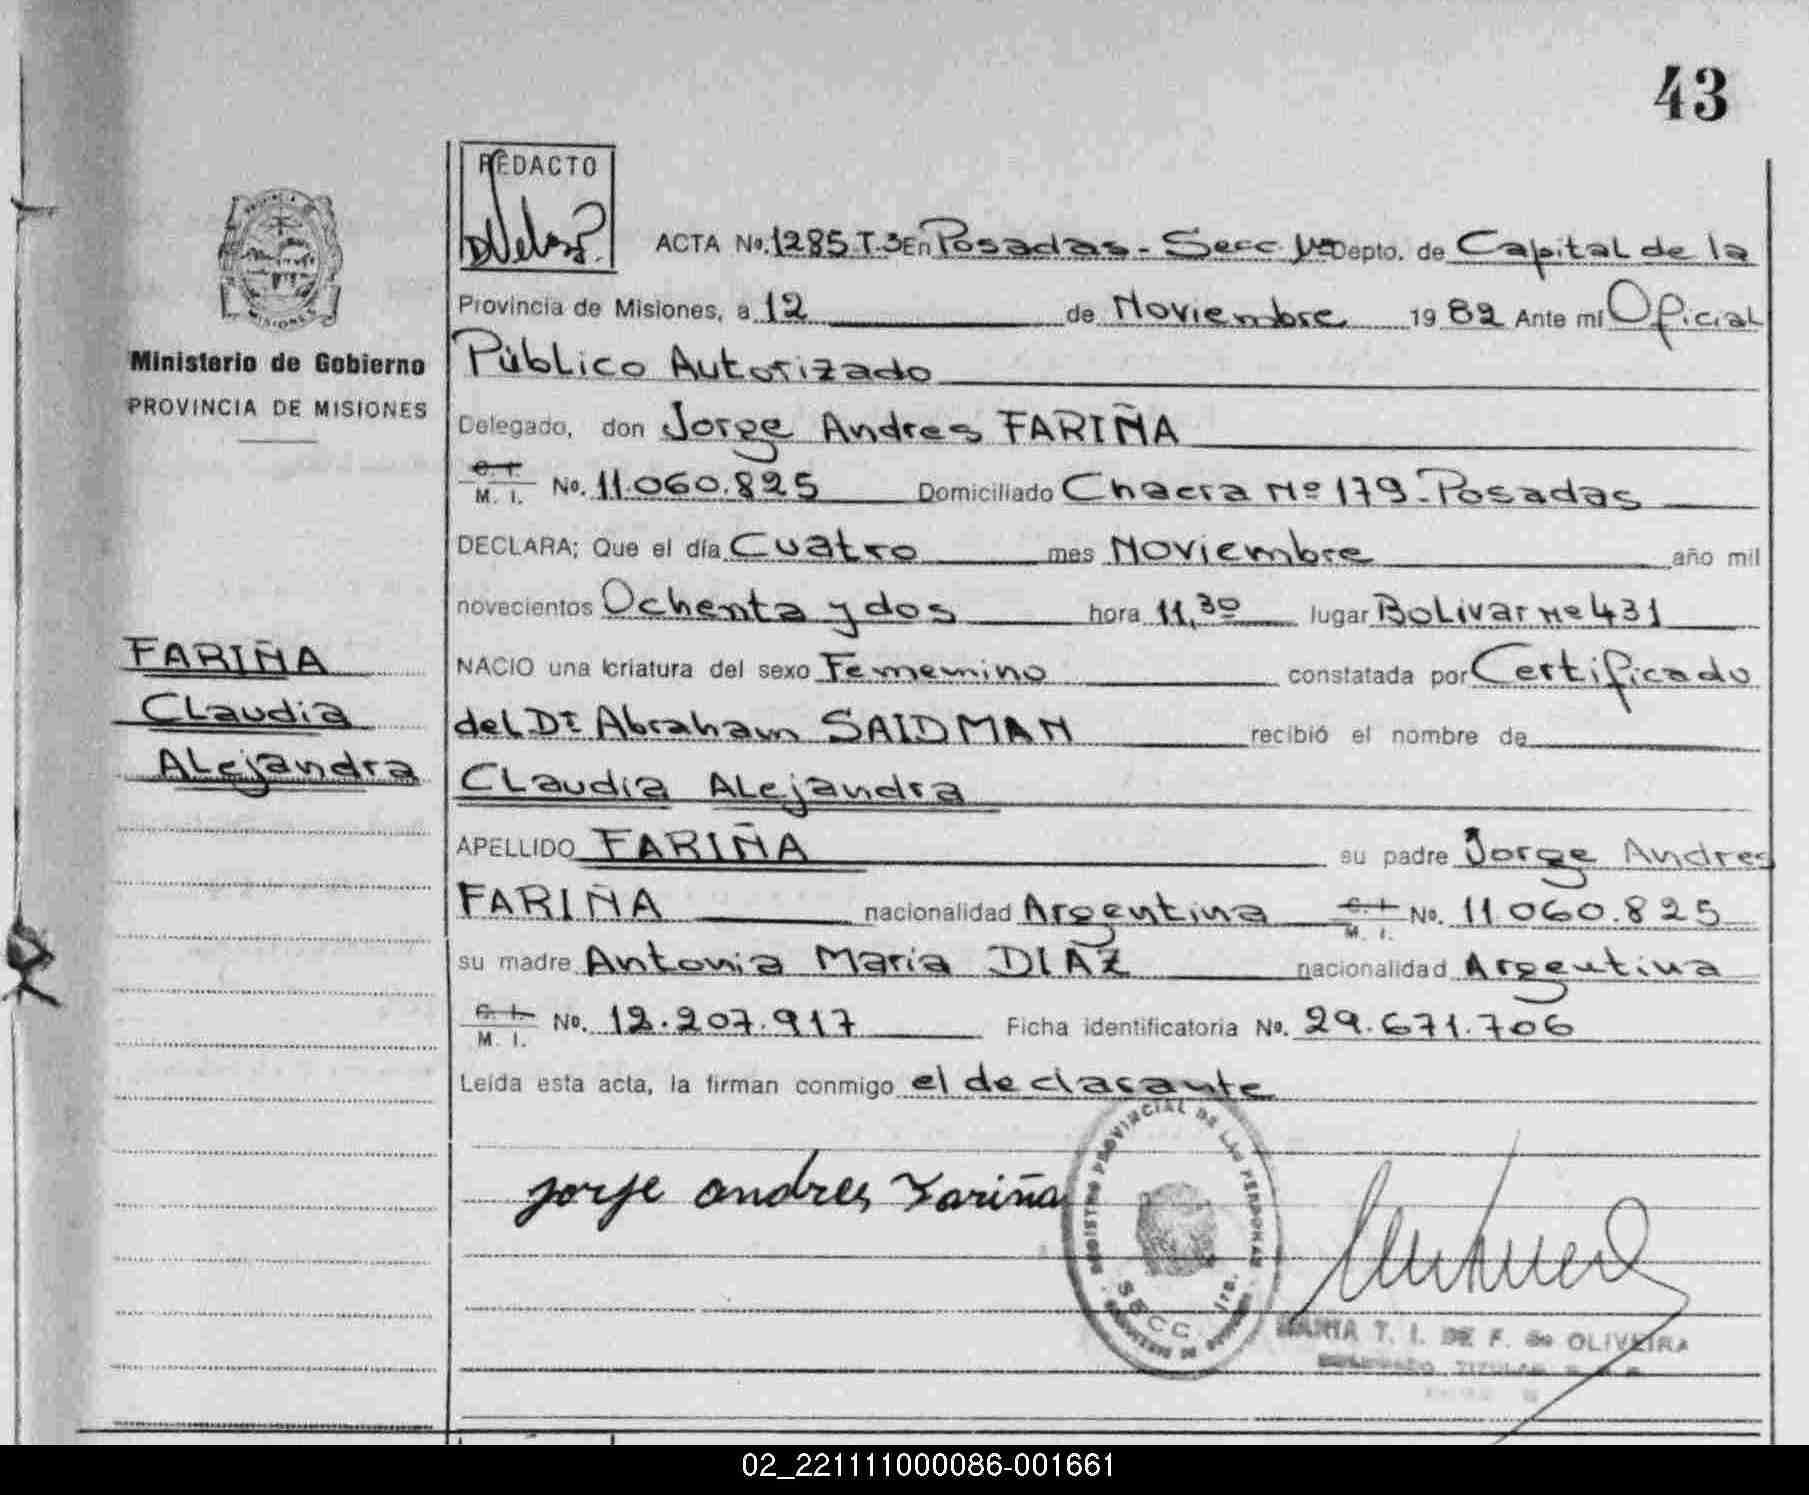 43
REDACTO
ACTA No. 1285 T.3 En Posadas - Secc 1ra Depto. de Capital de la
Provincia de Misiones, a 12 de Noviembre 1982 Ante mi Oficial
Ministerio de Gobierno
Público Autorizado
PROVINCIA DE MISIONES
Delegado, don Jorge Andres FARIÑA
C. I.
M. I. No. 11.060.825 Domiciliado Chacra Nº 179 - Posadas
DECLARA; Que el día Cuatro mes Noviembre año mil
novecientos Ochenta y dos hora 11,30 lugar Bolivar Nº 431
FARIÑA
Claudia
Alejandra
NACIO una criatura del sexo Femenino constatada por Certificado
del Dr Abraham SAIDMAN recibió el nombre de
Claudia Alejandra
APELLIDO FARIÑA su padre Jorge Andres
FARIÑA nacionalidad Argentina C. I. M. I. No. 11.060.825
su madre Antonia Maria DIAZ nacionalidad Argentina
C. I.
M. I. No. 12.207.917 Ficha identificatoria No. 29.671.706
Leída esta acta, la firman conmigo el declarante
Jorje andres Fariña
REGISTRO PROVINCIAL DE LAS PERSONAS
SECC. 1ra.
MARIA T. I. DE F. de OLIVEIRA
DELEGADO TITULAR
02_221111000086-001661